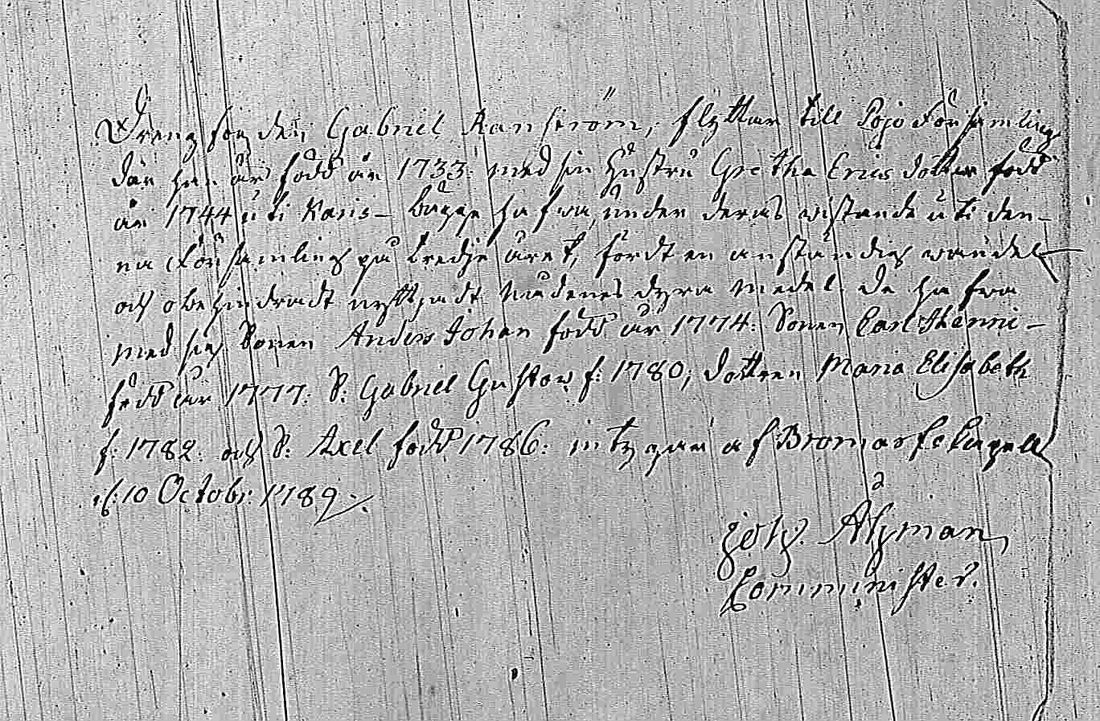 Dräng för den, Gabriel Ranström, flyttar till Pojo Församling
där han är född år 1733: med sin Hustru Gretha Erics dotter född
år 1744 uti Karis – bägge hafwa, under deras wistande uti den-
na Församling på tredje året, fördt en anständig wandel
och obehindradt nyttjadt Nådenes dyra medel. De hafwa
med sig Sonen Anders Johan född år 1774: Sonen Carl Henric
född år 1777: S: Gabriel Gustaw f: 1780; dottren Maria Elisabeth
f: 1782: och S: Axel född 1786: intygar af Bromarf Capell
d: 10 Octobr: 1789
Joh. Åhman
Comminister.